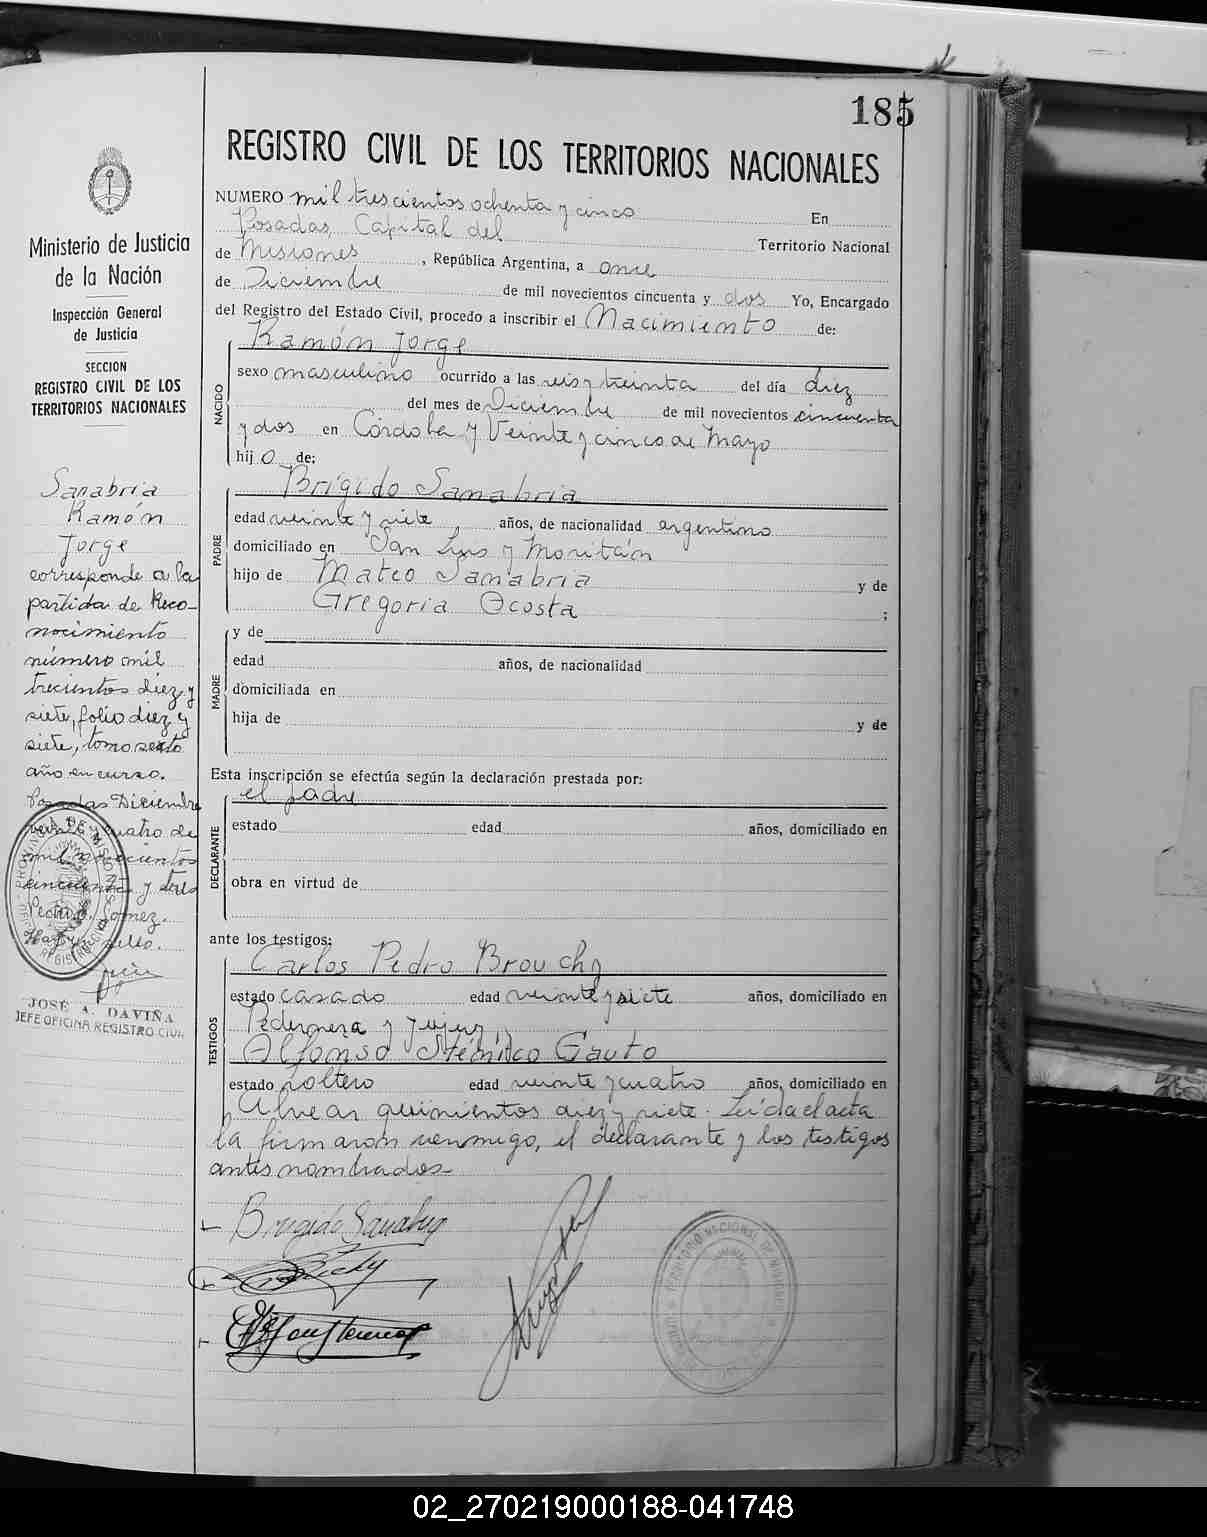 185
REGISTRO CIVIL DE LOS TERRITORIOS NACIONALES
Ministerio de Justicia
de la Nación
Inspección General
de Justicia
SECCION
REGISTRO CIVIL DE LOS
TERRITORIOS NACIONALES
Sanabria
Ramón
Jorge
corresponde a la
partida de Reco-
nocimiento
número mil
trecientos diez y
siete, folio diez y
siete, tomo sexto
año en curso.
Posadas Diciembre
cuatro de
mil novecientos
cincuenta y tres
Gomez.
JOSÉ A. DAVIÑA
JEFE OFICINA REGISTRO CIVIL
NUMERO mil trescientos ochenta y cinco En
Posadas Capital del Territorio Nacional
de Misiones, República Argentina, a once
de Diciembre de mil novecientos cincuenta y dos Yo, Encargado
del Registro del Estado Civil, procedo a inscribir el Nacimiento de:
Ramón Jorge
NACIDO
sexo masculino ocurrido a las seis y treinta del día diez
del mes de Diciembre de mil novecientos cincuenta
y dos en Córdoba y Veinte y cinco de Mayo
hijo de:
Brígido Sanabria
PADRE
edad veinte y siete años, de nacionalidad argentino
domiciliado en San Luis y Moritán
hijo de Mateo Sanabria y de
Gregoria Acosta ;
MADRE
y de
edad años, de nacionalidad
domiciliada en
hija de y de
Esta inscripción se efectúa según la declaración prestada por:
el padre
DECLARANTE
estado edad años, domiciliado en
obra en virtud de
ante los testigos:
Carlos Pedro Brouchy
TESTIGOS
estado casado edad veinte y siete años, domiciliado en
Pedernera y Jujuy
Alfonso Gauto
estado soltero edad veinte y cuatro años, domiciliado en
Alvear quinientos diez y siete. Leída el acta
la firmaron conmigo, el declarante y los testigos
antes nombrados-
Brigido Sanabria
TERRITORIO NACIONAL DE MISIONES
02_270219000188-041748